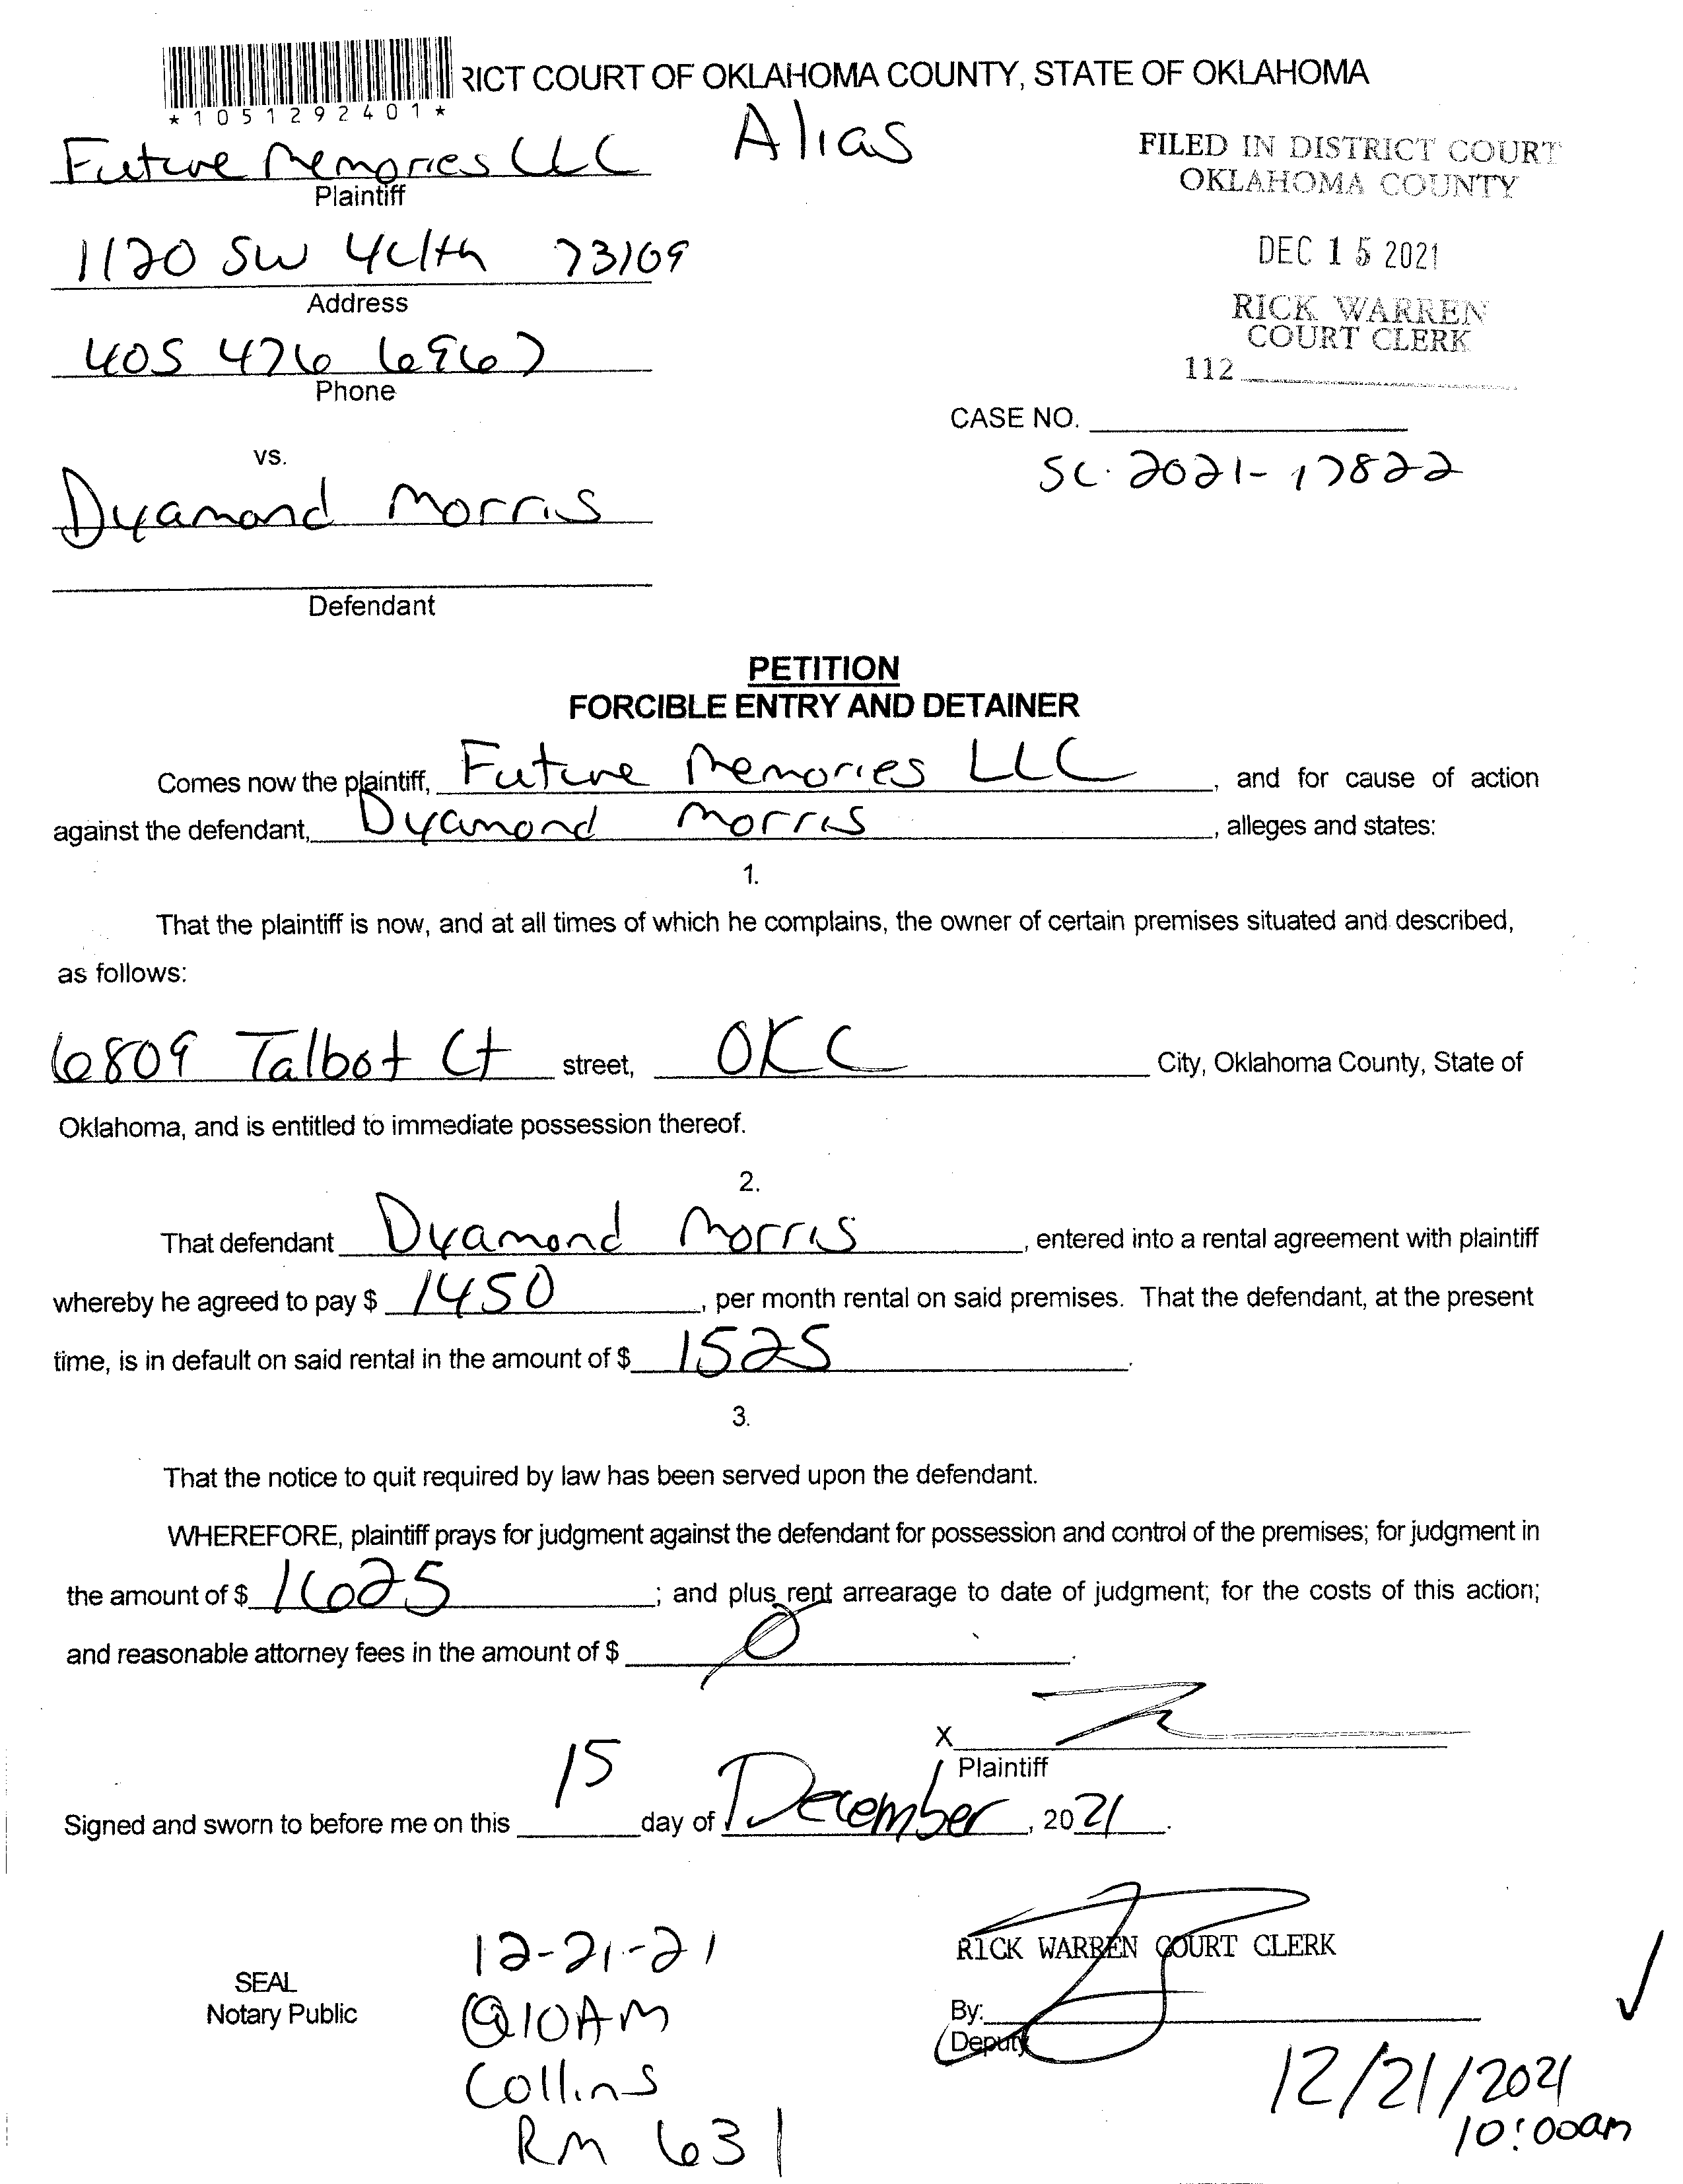 RICT COURT OF OKLAHOMA COUNTY, STATE OF OKLAHOMA
*1051292401*
Alias
Future Memories LLC
Plaintiff
FILED IN DISTRICT COURT
OKLAHOMA COUNTY
DEC 15 2021
RICK WARREN
COURT CLERK
112
1120 SW 44th 73109
Address
405 476 6967
Phone
CASE NO.
SC-2021-17822
vs.
Dyamond Morris
Defendant
PETITION
FORCIBLE ENTRY AND DETAINER
Comes now the plaintiff, Future Memories LLC, and for cause of action
against the defendant, Dyamond Morris, alleges and states:
1.
That the plaintiff is now, and at all times of which he complains, the owner of certain premises situated and described,
as follows:
6809 Talbot Ct street, OKC City, Oklahoma County, State of
Oklahoma, and is entitled to immediate possession thereof.
2.
That defendant Dyamond Morris, entered into a rental agreement with plaintiff
whereby he agreed to pay $ 1450, per month rental on said premises. That the defendant, at the present
time, is in default on said rental in the amount of $ 1525.
3.
That the notice to quit required by law has been served upon the defendant.
WHEREFORE, plaintiff prays for judgment against the defendant for possession and control of the premises; for judgment in
the amount of $ 1625; and plus rent arrearage to date of judgment; for the costs of this action;
and reasonable attorney fees in the amount of $ 0.
X
Plaintiff
Signed and sworn to before me on this 15 day of December, 2021.
RICK WARREN COURT CLERK
SEAL
Notary Public
By:
Deputy
12-21-21
@10AM
Collins
RM 631
12/21/2021
10:00am